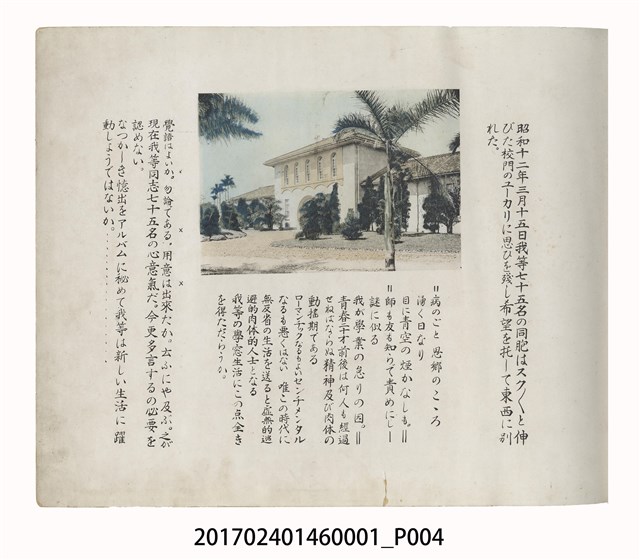 昭和十二年三月十五日我等七十五名の同胞はスク〱と伸
びた校門のユーカリに思ひを残し希望を托して東西に別
れた。
＝病のごと 思郷のこころ
湧く日なり
目に青空の煙かなしも。＝
＝師も友も知らで責めにし－
謎に似る
我が學業の怠りの因。＝
青春二十才前後は何人も経過
せねばならぬ精神及び肉体の
動揺期である
ローマンチックなるもよいセンチメンタル
なるも悪くはない 唯この時代に
無反省の生活を送ると虚無的逃
避的肉体的人士となる
我等の學窓生活にこの点全き
を得ただらうか。
× × ×
覺悟はよいか。勿論である。用意は出來たか。云ふにや及ぶ。之が
現在我等同志七十五名の心意氣だ。今更多言するの必要を
認めない。
なつかしき憶出をアルバムに秘めて我等は新しい生活に躍
動しようではないか.............
201702401460001_P004